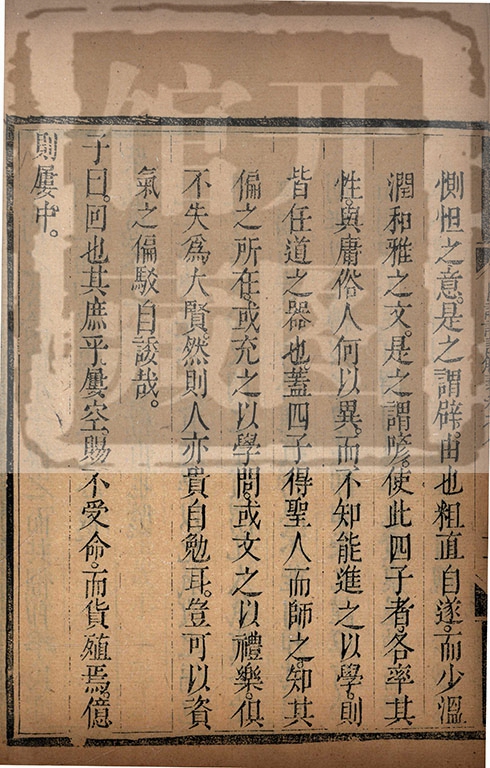 惻怛之意。是之謂辟。由也粗直自遂。而少溫
潤和雅之文。是之謂喭。使此四子者。各率其
性。與庸俗人何以異。而不知能進之以學。則
皆任道之器也。蓋四子得聖人而師之。知其
偏之所在。或充之以學問。或文之以禮樂。俱
不失爲大賢。然則人亦貴自勉耳。豈可以資
氣之偏駁自諉哉。
子曰。回也其庶乎屢空。賜不受命。而貨殖焉。億
則屢中。